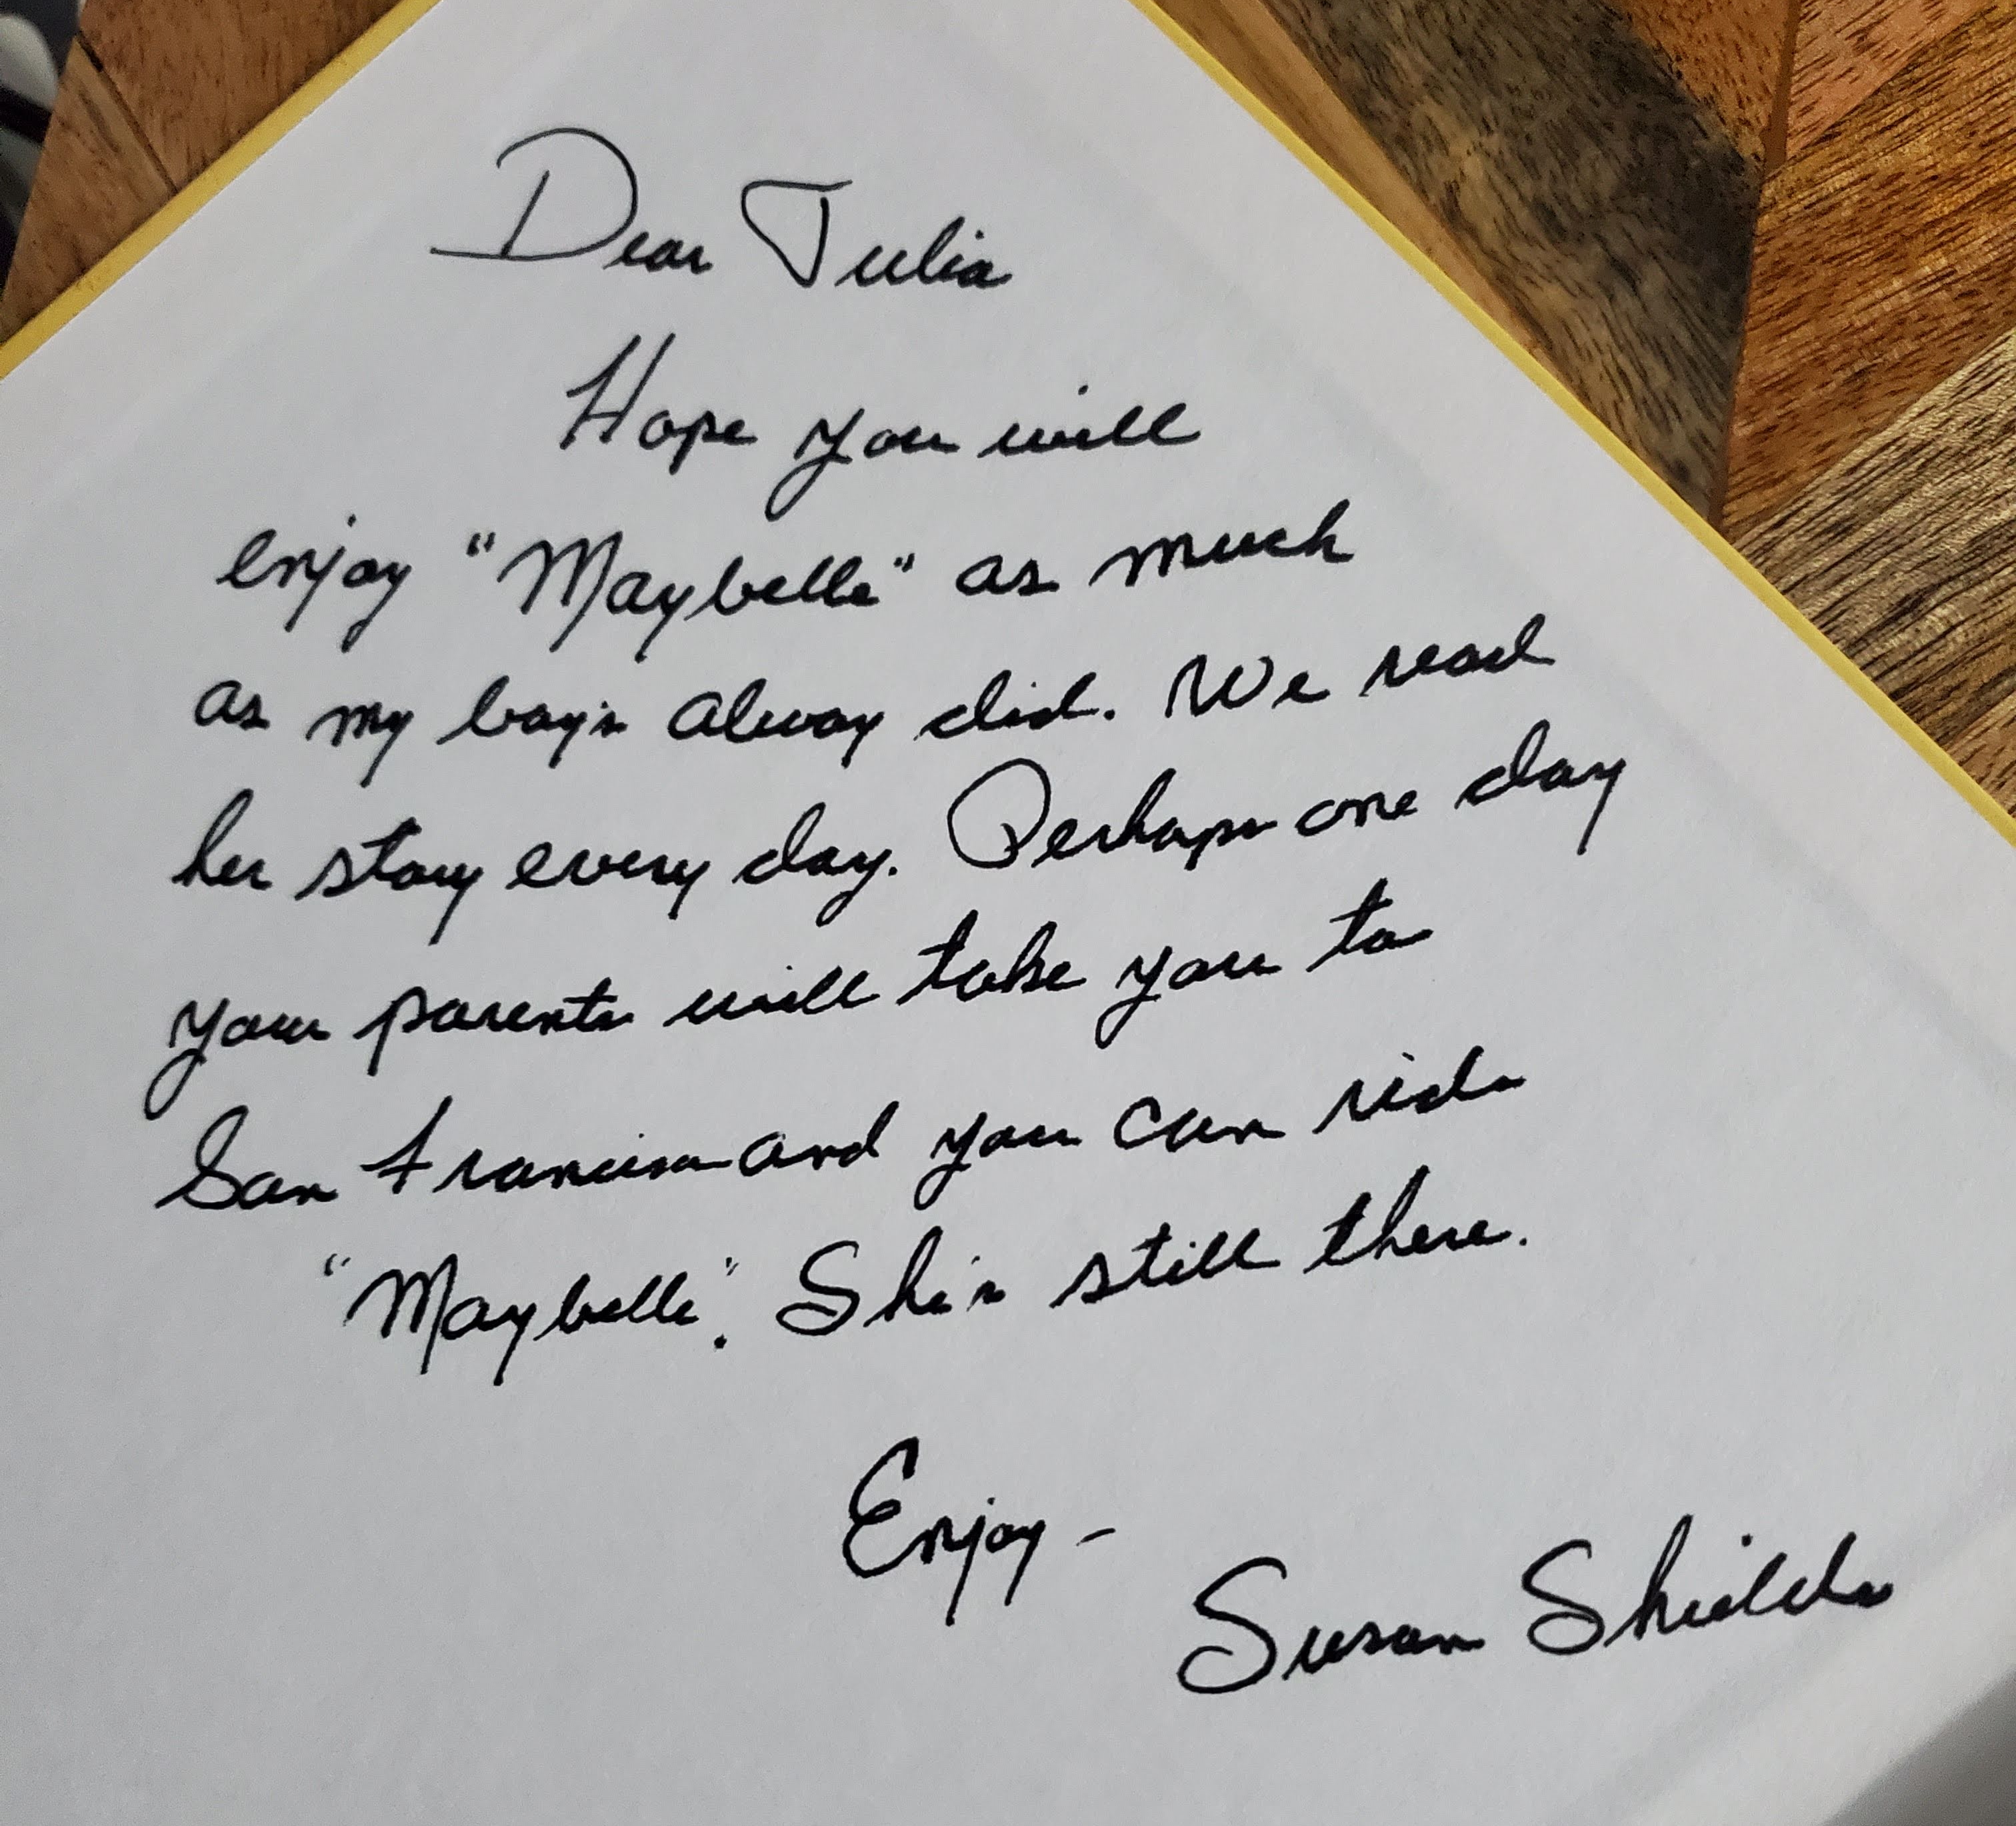 Dear Julia
Hope you will
enjoy "Maybelle" as much
as my boys alway did. We read
her story every day. Perhaps one day
your parents will take you to
San Francisco and you can ride
"Maybelle". She's still there.
Enjoy -
Susan Shields